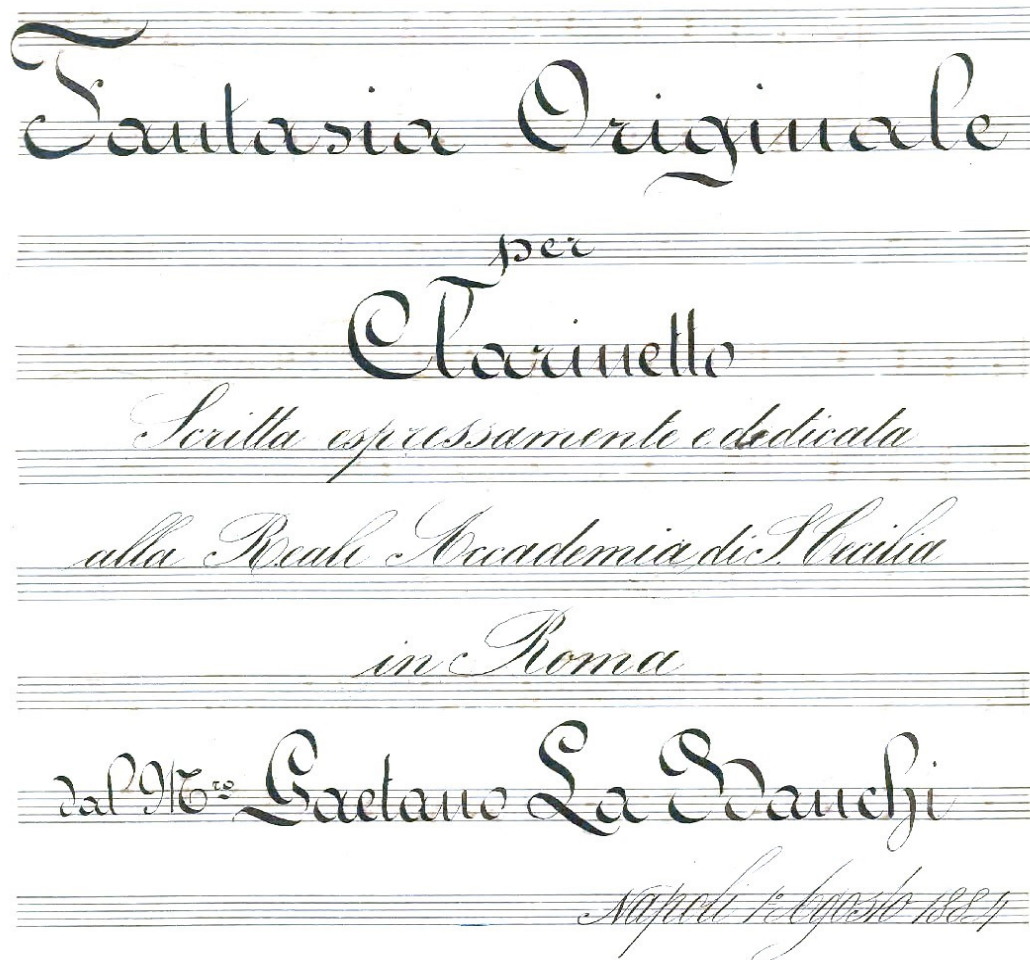 Fantasia Originale
per
Clarinetto
Scritta espressamente e dedicata
alla Reale Accademia di S. Cecilia
in Roma
dal M.ro Gaetano La Banchi
Napoli 1º Agosto 1884